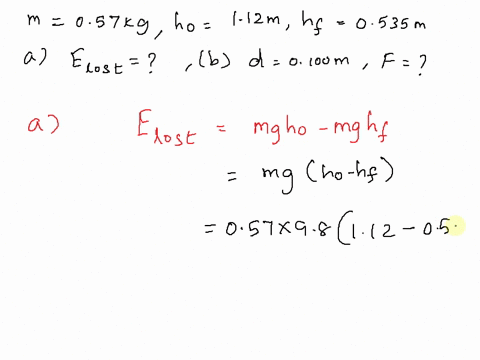 m = 0.57kg, ho = 1.12m, hf = 0.535m
a) Elost = ?, (b) d = 0.100m, F = ?
a) Elost = mgho - mghf
= mg (ho-hf)
= 0.57×9.8(1.12 - 0.5